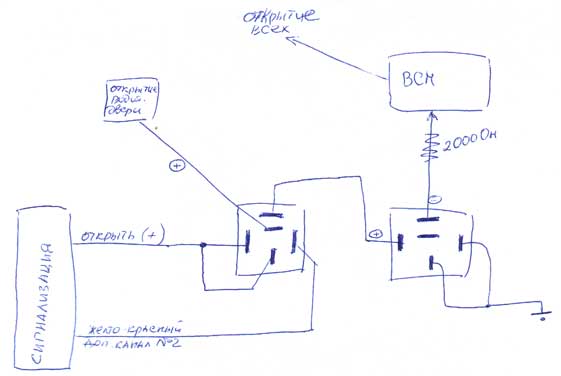 открытие
всех
ВСМ
открытие
водит.
двери
2000 Ом
+
-
открыть (+)
+
СИГНАЛИЗАЦИЯ
желто-красный
доп. канал №2